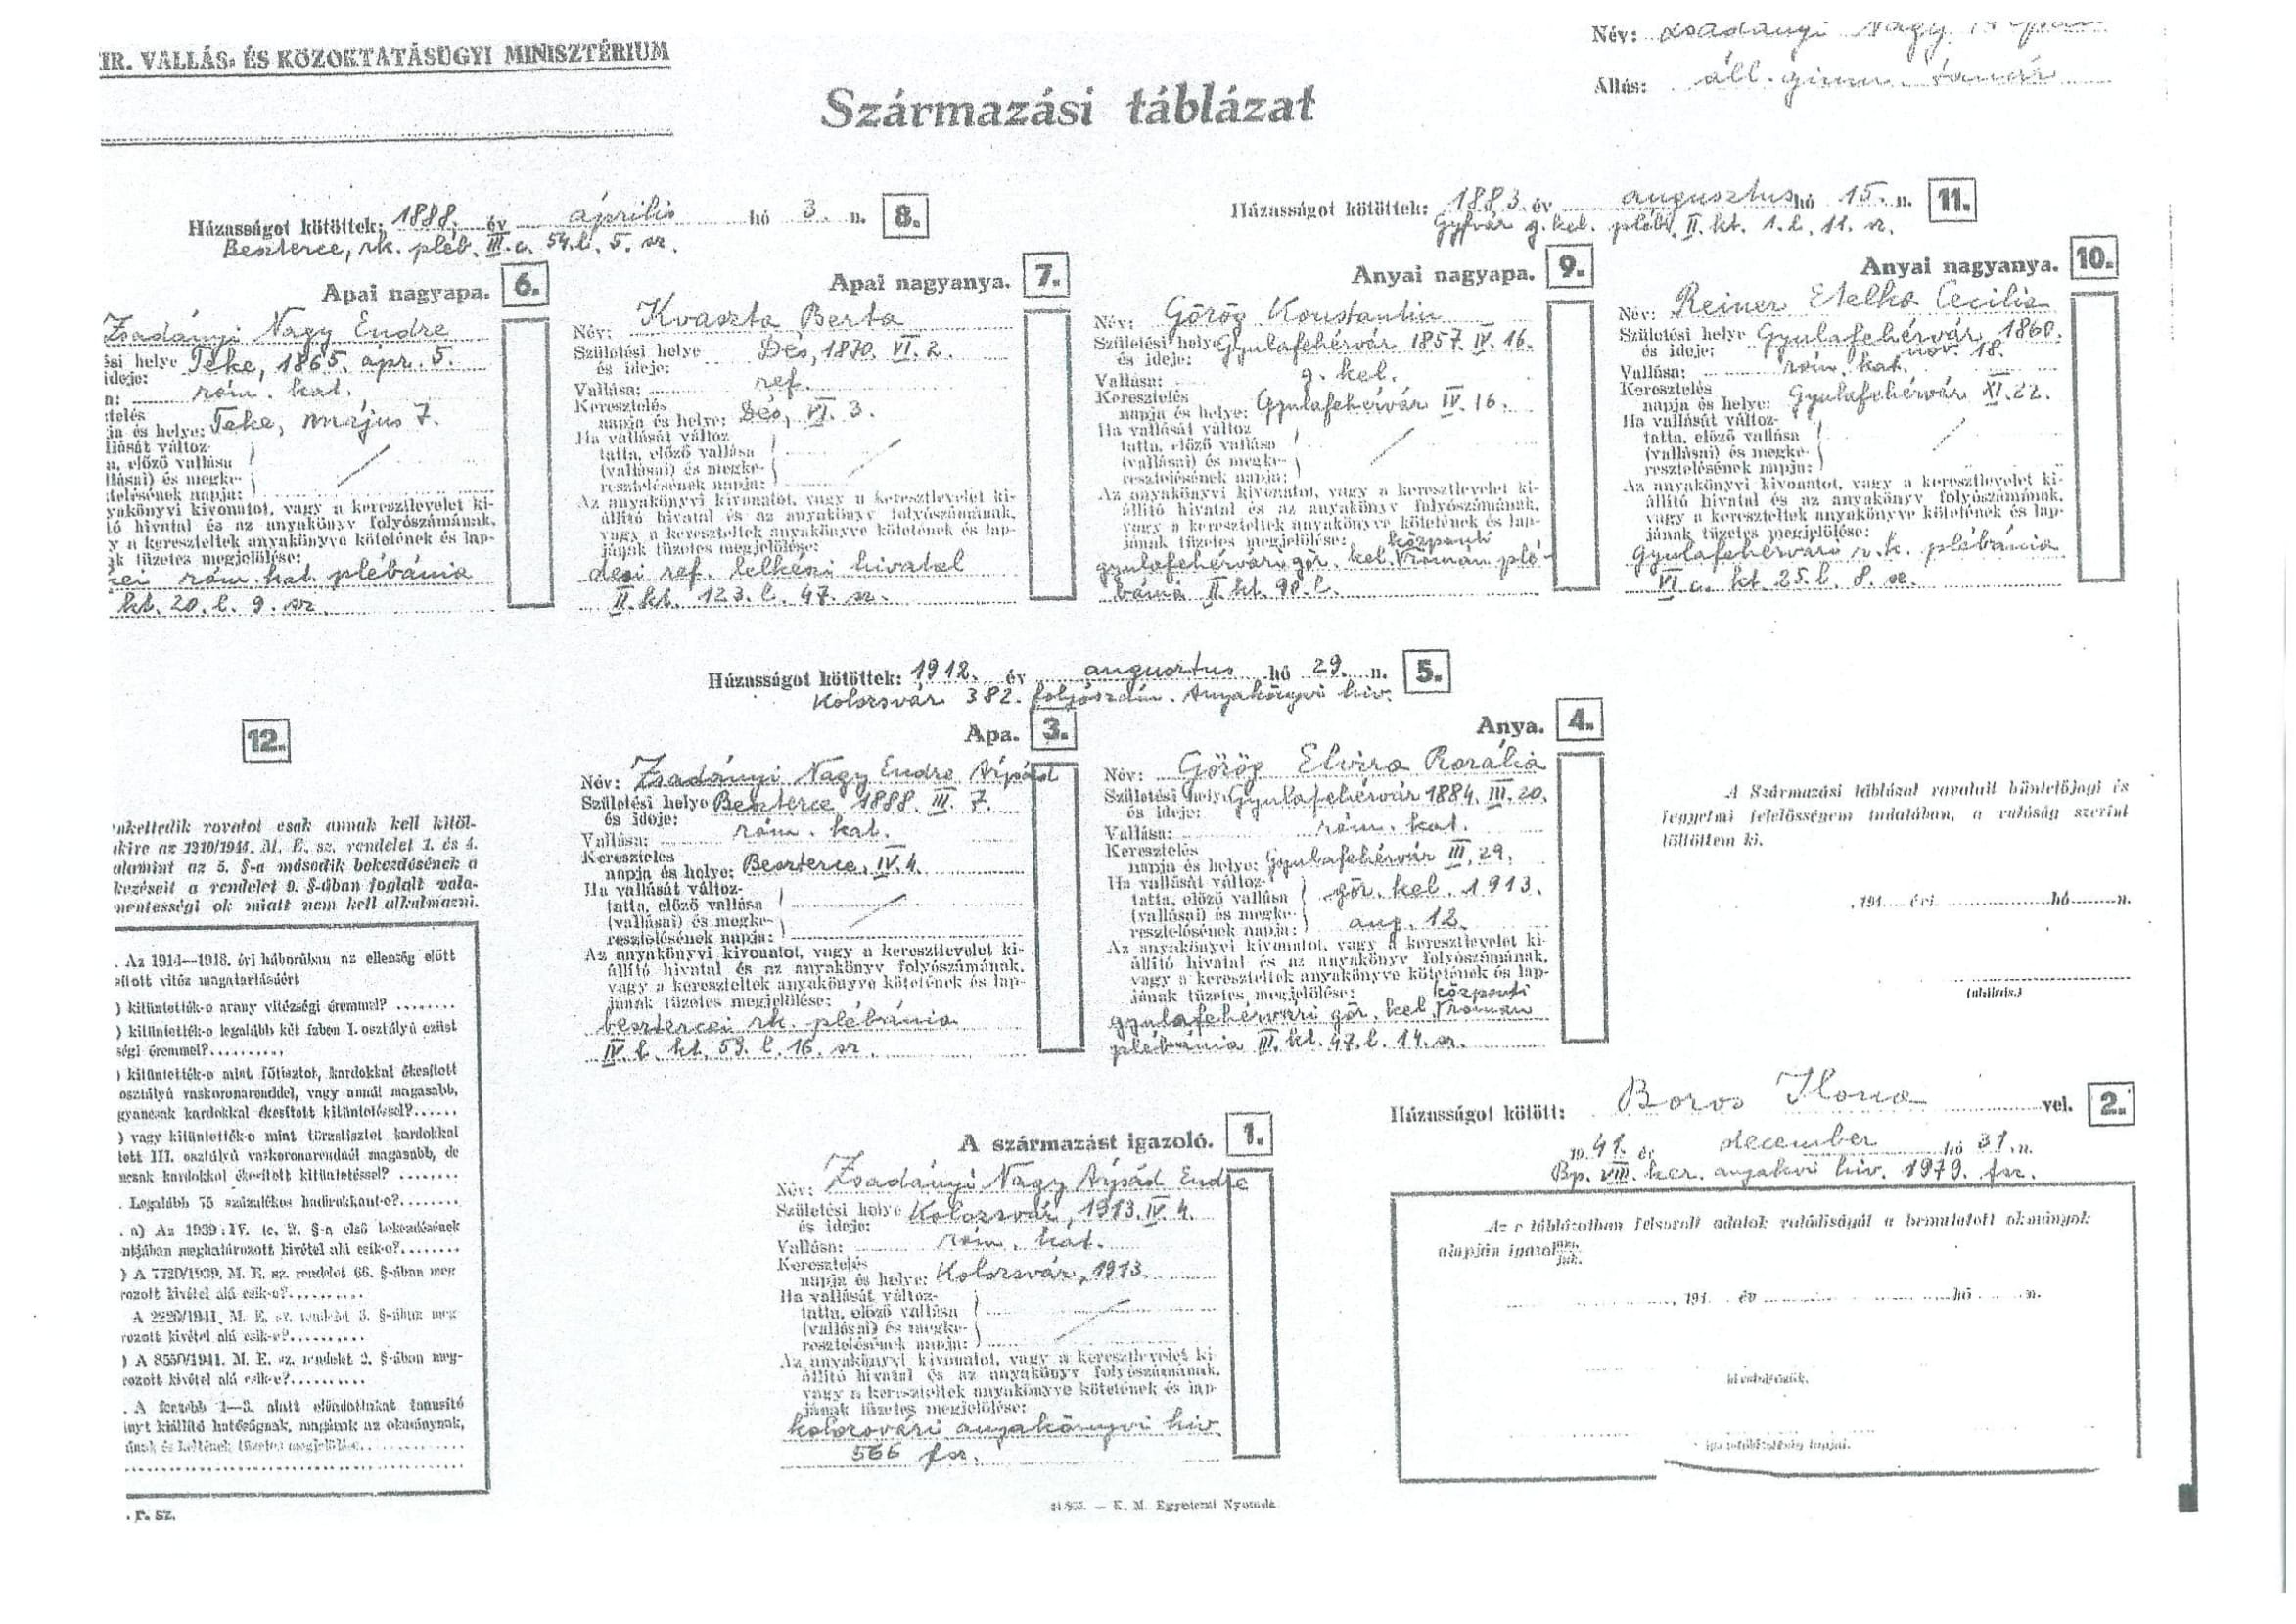 IR. VALLÁS- ÉS KÖZOKTATÁSÜGYI MINISZTÉRIUM
Név: Zsadányi Nagy Árpád
Állás: áll. gimn. tanár
Származási táblázat
Házasságot kötöttek: 1888. év április hó 3. n. 8.
Beszterce, rk. pléb. III. c. 54. l. 5. sz.
Házasságot kötöttek: 1883. év augusztus hó 15. n. 11.
Gyfvár g. kel. pléb. II. kt. 1. l. 11. sz.
Apai nagyapa. 6.
Zsadányi Nagy Endre
ési helye Teke, 1865. ápr. 5.
ideje:
a: róm. kat.
telés
ja és helye: Teke, május 7.
llását változ-
a, előző vallása
llásai) és megke-
telésének napja:
yakönyvi kivonatot, vagy a keresztlevelet ki-
tó hivatal és az anyakönyv folyószámának,
y a kereszteltek anyakönyve kötetének és lap-
ak tüzetes megjelölése:
kei róm. kat. plébánia
kt. 20. l. 9. sz.
Apai nagyanya. 7.
Név: Kvaszta Berta
Születési helye Dés, 1870. VI. 2.
és ideje:
Vallása: ref.
Keresztelés
napja és helye: Dés, VI. 3.
Ha vallását változ-
tatta, előző vallása
(vallásai) és megke-
resztelésének napja:
Az anyakönyvi kivonatot, vagy a keresztlevelet ki-
állító hivatal és az anyakönyv folyószámának,
vagy a kereszteltek anyakönyve kötetének és lap-
jának tüzetes megjelölése:
dési ref. lelkészi hivatal
II. kt. 123. l. 47. sz.
Anyai nagyapa. 9.
Név: Görög Konstantin
Születési helye Gyulafehérvár 1857. IV. 16.
és ideje:
Vallása: g. kel.
Keresztelés
napja és helye: Gyulafehérvár IV. 16.
Ha vallását változ
tatta, előző vallása
(vallásai) és megke-
resztelésének napja:
Az anyakönyvi kivonatot, vagy a keresztlevelet ki-
állító hivatal és az anyakönyv folyószámának,
vagy a kereszteltek anyakönyve kötetének és lap-
jának tüzetes megjelölése: központi
gyulafehérvári gör. kel. román plé-
bánia II. kt. 90. l.
Anyai nagyanya. 10.
Név: Reiner Etelka Cecilia
Születési helye Gyulafehérvár, 1860.
és ideje: nov. 18.
Vallása: róm. kat.
Keresztelés
napja és helye: Gyulafehérvár XI. 22.
Ha vallását változ-
tatta, előző vallása
(vallásai) és megke-
resztelésének napja:
Az anyakönyvi kivonatot, vagy a keresztlevelet ki-
állító hivatal és az anyakönyv folyószámának,
vagy a kereszteltek anyakönyve kötetének és lap-
jának tüzetes megjelölése:
gyulafehérvári r. k. plébánia
VI. c. kt. 25. l. 8. sz.
Házasságot kötöttek: 1912. év augusztus hó 29. n. 5.
Kolozsvár 382. folyószám. Anyakönyvi hiv.
12.
Apa. 3.
Név: Zsadányi Nagy Endre Árpád
Születési helye Beszterce 1888. III. 7.
és ideje:
Vallása: róm. kat.
Keresztelés
napja és helye: Beszterce, IV. 4.
Ha vallását változ-
tatta, előző vallása
(vallásai) és megke-
resztelésének napja:
Az anyakönyvi kivonatot, vagy a keresztlevelet ki-
állító hivatal és az anyakönyv folyószámának,
vagy a kereszteltek anyakönyve kötetének és lap-
jának tüzetes megjelölése:
besztercei rk. plébánia
IV. b. kt. 59. l. 16. sz.
Anya. 4.
Név: Görög Elvira Rozália
Születési helye Gyulafehérvár 1884. III. 20.
és ideje:
Vallása: róm. kat.
Keresztelés
napja és helye: Gyulafehérvár III. 29.
Ha vallását változ-
tatta, előző vallása gör. kel. 1913.
(vallásai) és megke-
resztelésének napja: aug. 12.
Az anyakönyvi kivonatot, vagy a keresztlevelet ki-
állító hivatal és az anyakönyv folyószámának,
vagy a kereszteltek anyakönyve kötetének és lap-
jának tüzetes megjelölése: központi
gyulafehérvári gör. kel. román
plébánia III. kt. 47. l. 14. sz.
A Származási táblázat rovatait büntetőjogi és
fegyelmi felelősségem tudatában, a valóság szerint
töltöttem ki.
, 194 évi hó n.
(aláírás.)
nkettedik rovatot csak annak kell kitöl-
akire az 1210/1944. M. E. sz. rendelet 1. és 4.
alamint az 5. §-a második bekezdésének a
kezéseit a rendelet 9. §-ában foglalt vala-
mentességi ok miatt nem kell alkalmazni.
. Az 1914—1918. évi háborúban az ellenség előtt
sított vitéz magatartásáért
) kitüntették-e arany vitézségi éremmel?
) kitüntették-e legalább két ízben I. osztályú ezüst
ségi éremmel?
) kitüntették-e mint főtisztet, kardokkal ékesített
osztályú vaskoronarenddel, vagy annál magasabb,
gyancsak kardokkal ékesített kitüntetéssel?
) vagy kitüntették-e mint törzstisztet kardokkal
tett III. osztályú vaskoronarendnél magasabb, de
ncsak kardokkal ékesített kitüntetéssel?
. Legalább 75 százalékos hadirokkant-e?
. a) Az 1939: IV. tc. 2. §-a első bekezdésének
ntjában meghatározott kivétel alá esik-e?
) A 7720/1939. M. E. sz. rendelet 66. §-ában meg
rozott kivétel alá esik-e?
A 2220/1941. M. E. sz. rendelet 3. §-ában meg
rozott kivétel alá esik-e?
) A 8550/1941. M. E. sz. rendelet 2. §-ában meg-
rozott kivétel alá esik-e?
. A fentebb 1—3. alatt előadottakat tanusító
inyt kiállító hatóságnak, magának az okmánynak,
ának és keltének tüzetes megjelölése
. r. sz.
A származást igazoló. 1.
Név: Zsadányi Nagy Árpád Endre
Születési helye Kolozsvár, 1913. IV. 4.
és ideje:
Vallása: róm. kat.
Keresztelés
napja és helye: Kolozsvár, 1913.
Ha vallását változ-
tatta, előző vallása
(vallásai) és megke-
resztelésének napja:
Az anyakönyvi kivonatot, vagy a keresztlevelet ki-
állító hivatal és az anyakönyv folyószámának,
vagy a kereszteltek anyakönyve kötetének és lap-
jának tüzetes megjelölése:
kolozsvári anyakönyvi hiv
566 fsz.
Házasságot kötött: Boros Ilona vel. 2.
1941. év december hó 31. n.
Bp. VIII. ker. anyakvi hiv. 1979. fsz.
Az e táblázatban felsorolt adatok valódiságát a bemutatott okmányok
alapján igazol
, 194 év hó n.
— K. M. Egyetemi Nyomda